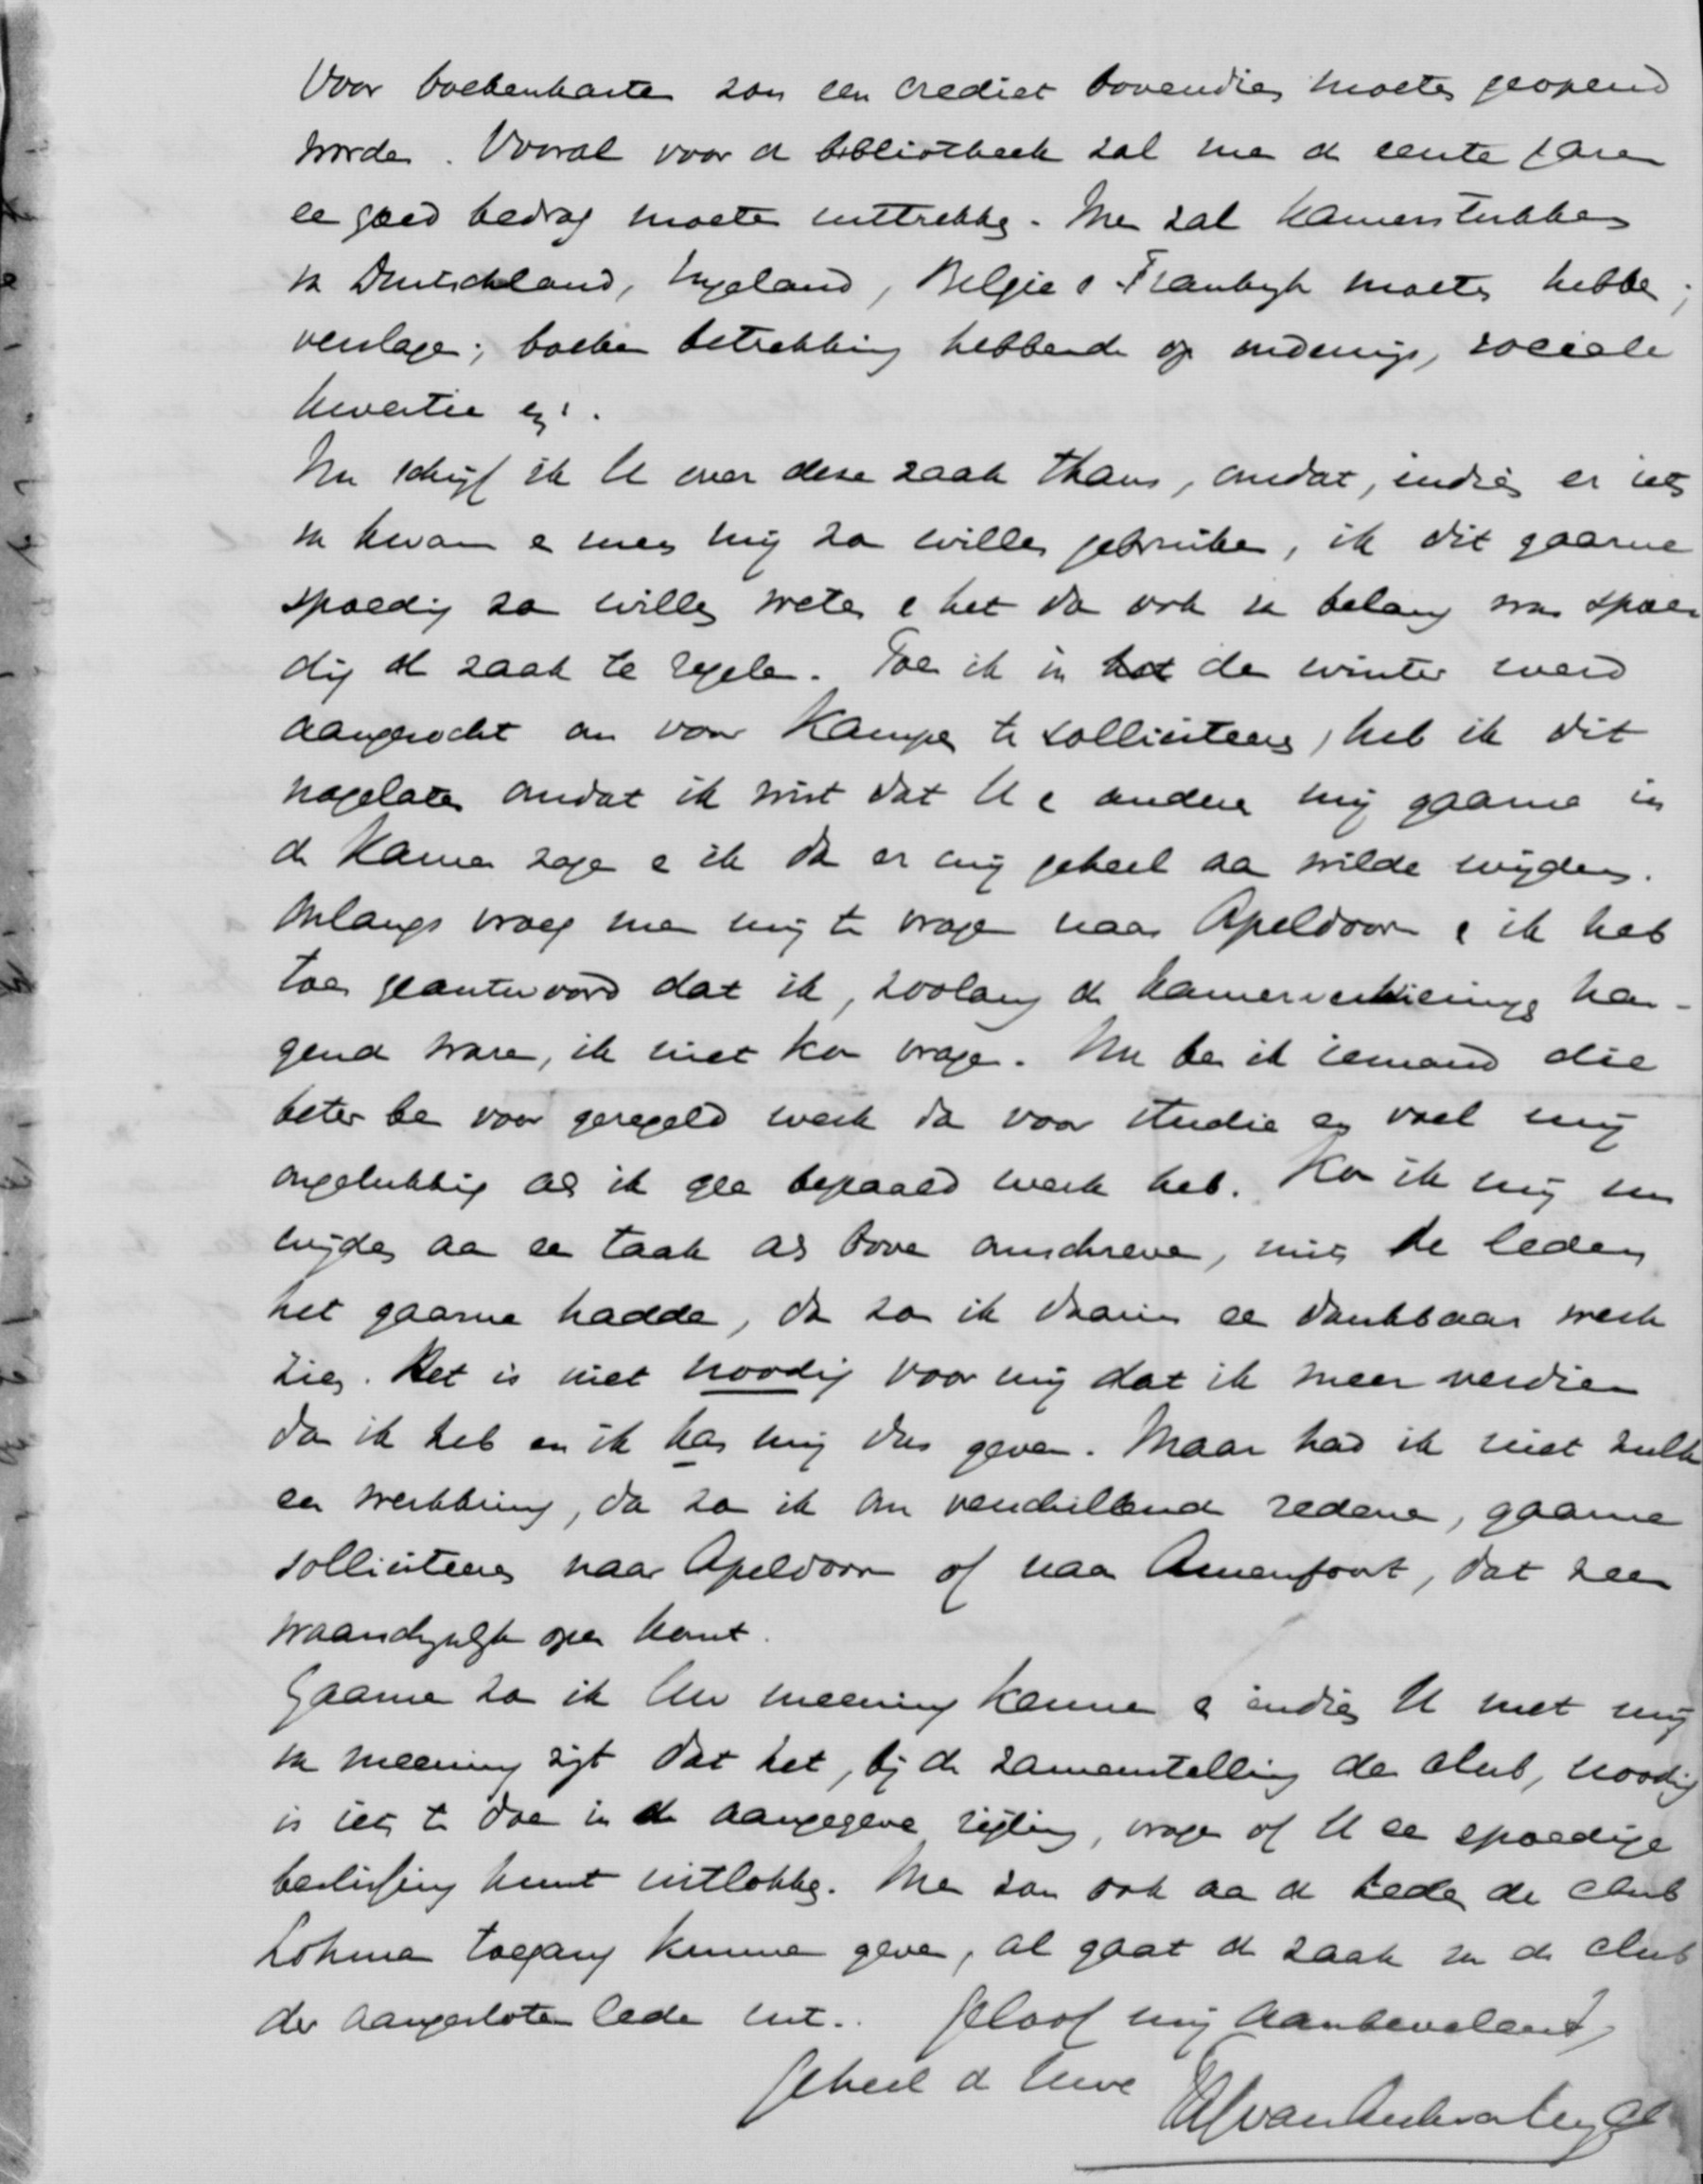 Voor boekenkasten zou een crediet bovendien moeten geopend
worden. Vooral voor de bibliotheek zal men de eerste jaren
een goed bedrag moeten uittrekken. Men zal Kamerstukken
van Duitschland, Engeland, Belgie en Frankrijk moeten hebben;
verslagen; boeken betrekking hebbende op onderwijs, sociale
kwestie enz.
Nu schrijf ik U over deze zaak thans, omdat, indien er iets
van kwam en men mij zou willen gebruiken, ik dit gaarne
spoedig zou willen weten en het dan ook van belang was spoe-
dig de zaak te regelen. Toen ik in het de winter werd
aangezocht om voor Kampen te solliciteeren, heb ik dit
nagelaten omdat ik wist dat U en anderen mij gaarne in
de Kamer zagen en ik dan er mij geheel aan wilde wijden.
Onlangs vroeg men mij te vragen naar Apeldoorn en ik heb
toen geantwoord dat ik, zoolang de Kamerverkiezingen han-
gend waren, ik niet kon vragen. Nu ben ik iemand die
beter ben voor geregeld werk dan voor studie en voel mij
ongelukkig als ik geen bepaald werk heb. Kon ik mij nu
wijden aan een taak als boven omschreven, mits de leden
het gaarne hadden, dan zou ik daarin een dankbaar werk
zien. Het is niet noodig voor mij dat ik meer verdien
dan ik heb en ik kan mij dus geven. Maar had ik niet zulk
een werkkring, dan zou ik om verschillende redenen, gaarne
solliciteeren naar Apeldoorn of naar Amersfoort, dat zeer
waarschijnlijk open komt.
Gaarne zou ik Uw meening kennen en indien U met mij
van meening zijt dat het, bij de samenstelling der club, noodig
is iets te doen in de aangegeven rigting, vragen of U een spoedige
beslissing kunt uitlokken. Men zou ook aan de leden der club
Lohman toegang kunnen geven, al gaat de zaak van de club
der aangesloten leden uit. Geloof mij aanbevelend,
Geheel de Uwe